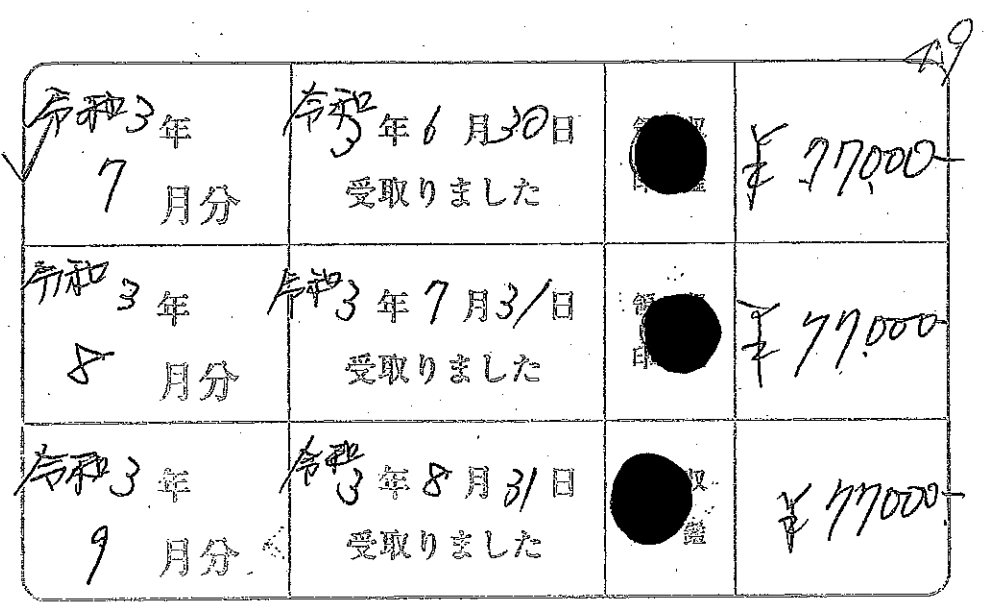 19
令和3年
7月分
令和3年6月30日
受取りました
領収
印鑑
¥77,000-
令和3年
8月分
令和3年7月31日
受取りました
領収
印
¥77,000-
令和3年
9月分
令和3年8月31日
受取りました
収
鑑
¥77,000-